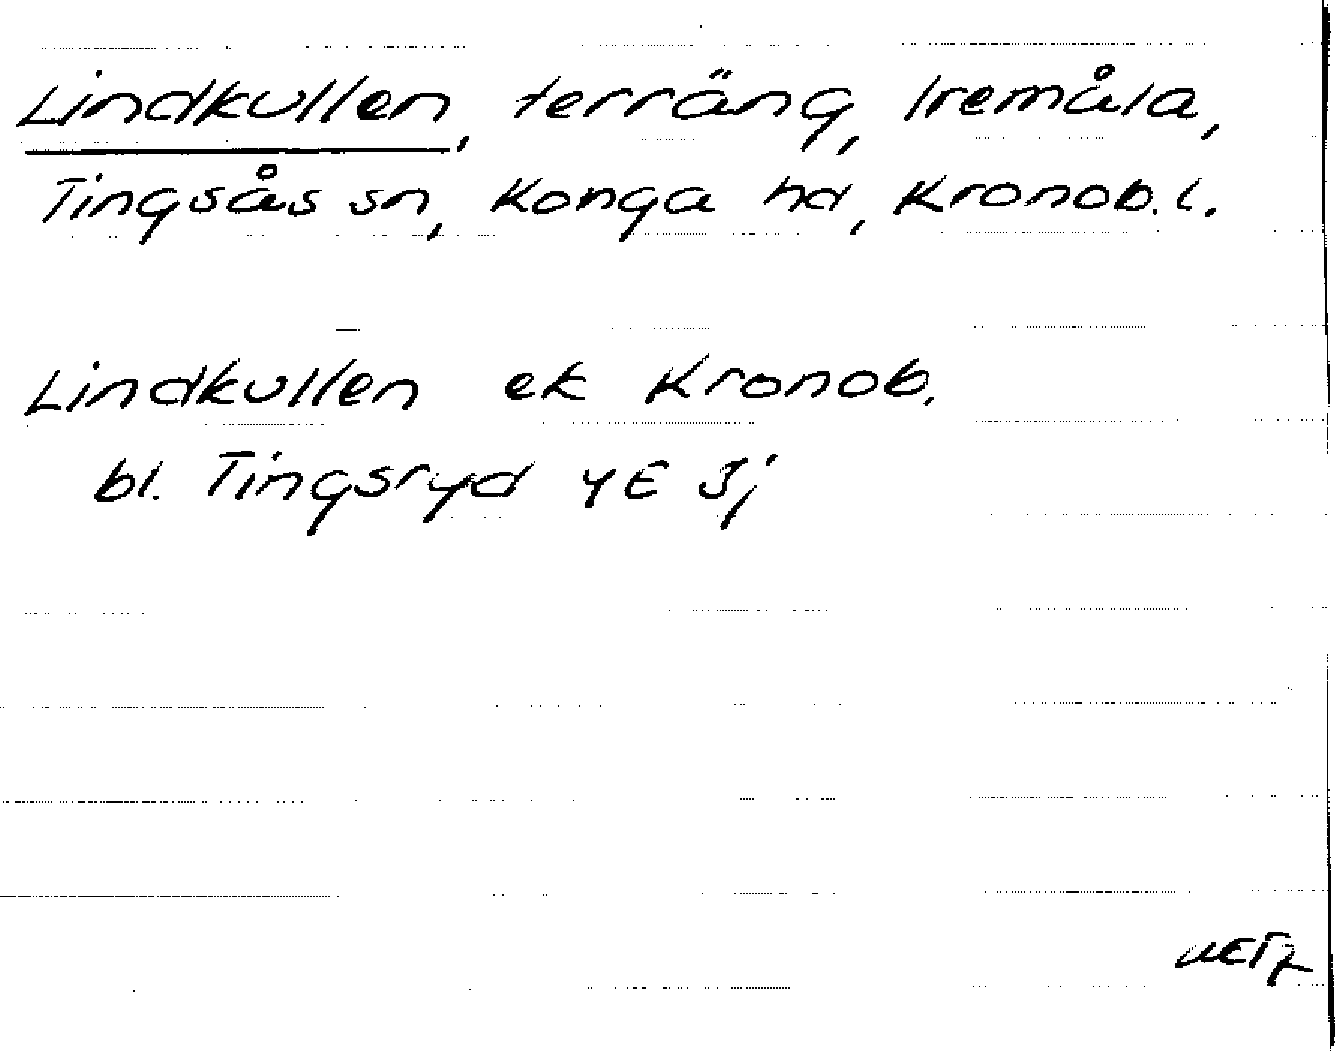 Lindkullen, terräng, Iremåla,
Tingsås sn, Konga hd, Kronob. l.
Lindkullen ek Kronob.
bl. Tingsryd 4E 3j